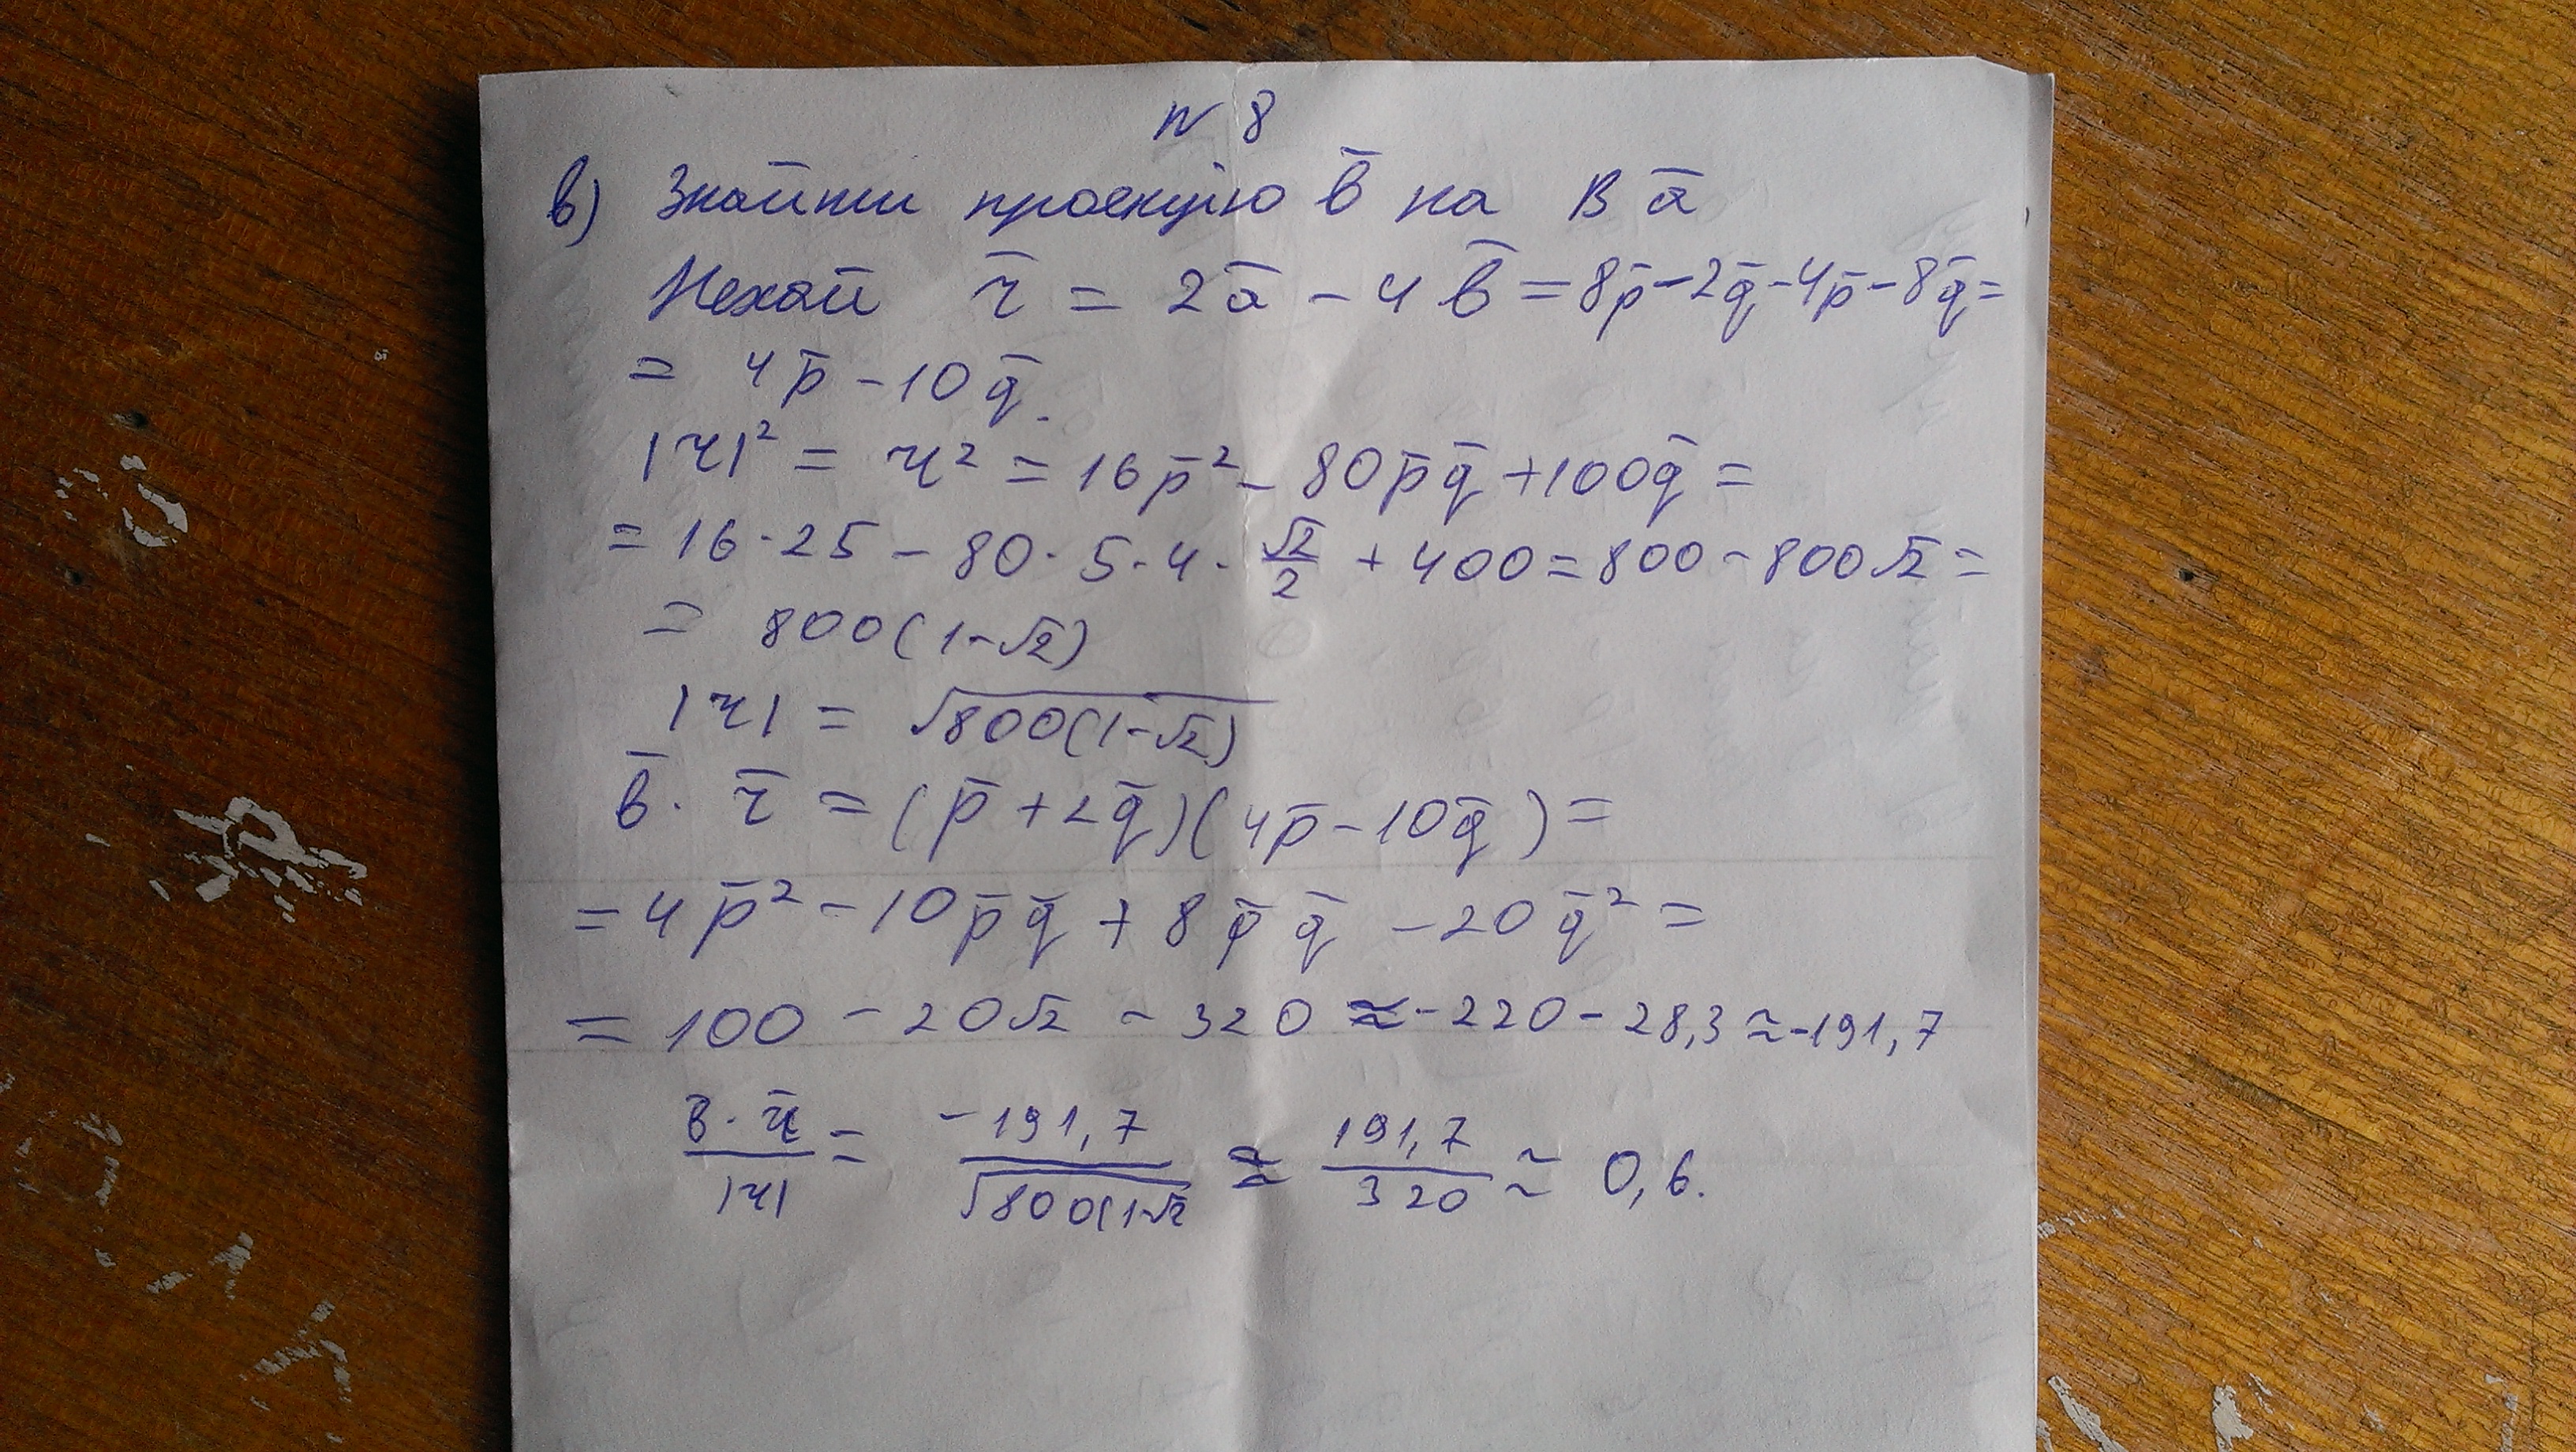 № 8
в) Знайти проекцію b̄ на В ā
Нехай r̄ = 2ā - 4b̄ = 8p̄ - 2q̄ - 4p̄ - 8q̄ =
= 4p̄ - 10q̄.
|r|² = r² = 16p̄² - 80p̄q̄ + 100q̄ =
= 16·25 - 80·5·4·√2/2 + 400 = 800 - 800√2 =
= 800(1-√2)
|r| = √800(1-√2)
b̄ · r̄ = (p̄ + 2q̄)(4p̄ - 10q̄) =
= 4p̄² - 10p̄q̄ + 8p̄q̄ - 20q̄² =
= 100 - 20√2 - 320 ≈ -220 - 28,3 ≈ -191,7
b̄·r̄/|r| = -191,7/√800(1-√2 ≈ 191,7/320 ≈ 0,6.